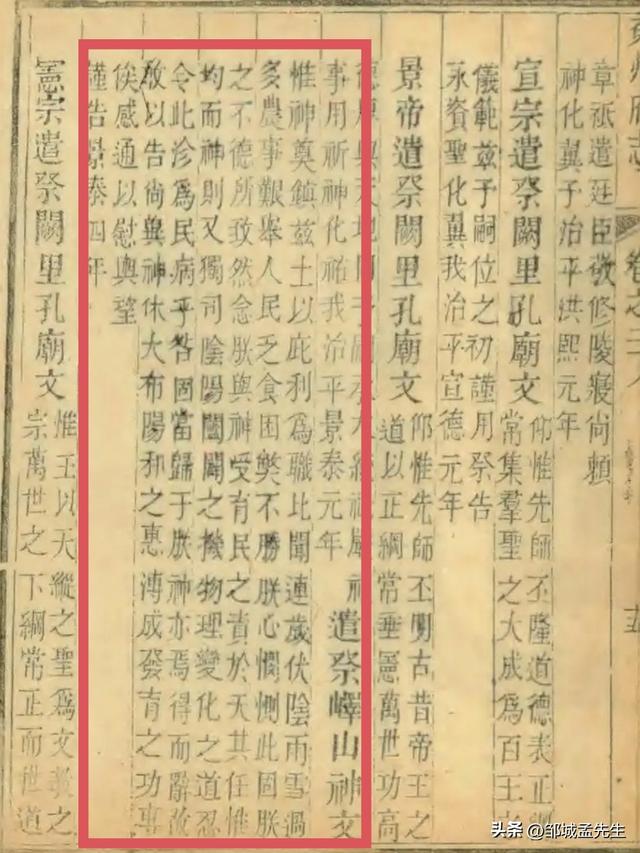 章祇遣廷臣敬修陵寢尚賴
神化翼予治平洪熙元年
宣宗遣祭闕里孔廟文
仰惟先師丕隆道德表正
常集羣聖之大成為百王
儀範茲予嗣位之初謹用祭告
永資聖化翼我治平宣德元年
景帝遣祭闕里孔廟文
仰惟先師丕闡古昔帝王之
道以正綱常垂憲萬世功高
事用祈神化祐我治平景泰元年
遣祭嶧山神文
惟神奠鎮茲土以庇利為職比聞連歲伏陰雨雪過
多農事艱舉人民乏食困獘不勝朕心憫惻此固朕
之不德所致然念朕與神受育民之責於天其任惟
均而神則又獨司陰陽闔闢之機物理變化之道忍
令此沴為民病乎咎固當歸于朕神亦焉得而辭故
敢以告尚與神休大布陽和之惠溥成發育之功專
俟感通以慰輿望
謹告景泰四年
憲宗遣祭闕里孔廟文
惟王以天縱之聖為文教之
宗萬世之下綱常正而世道
頭条 @邹城孟先生